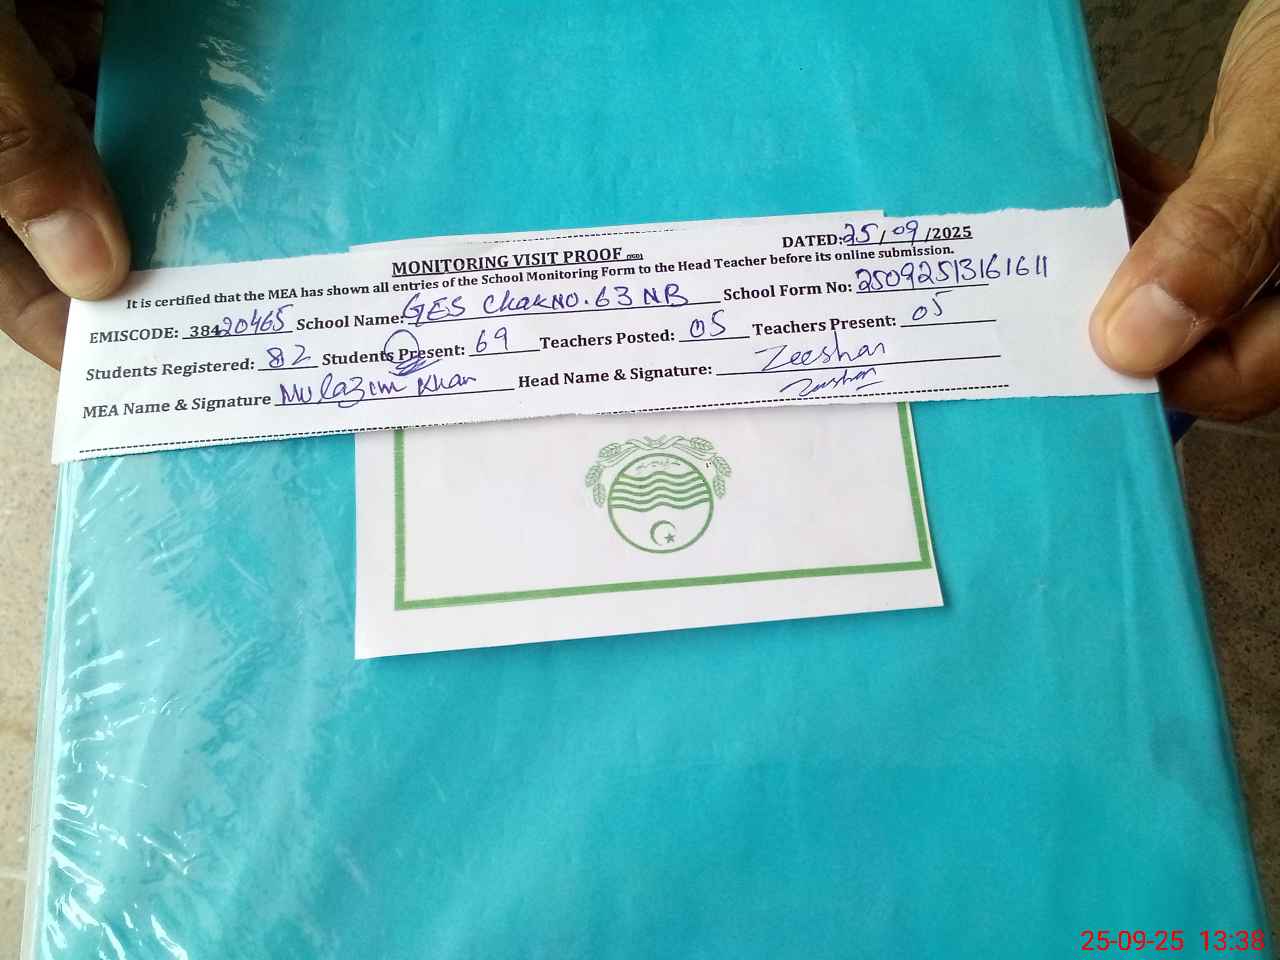 MONITORING VISIT PROOF
DATED: 25/09/2025
It is certified that the MEA has shown all entries of the School Monitoring Form to the Head Teacher before its online submission.
EMISCODE: 38420465 School Name: GES Chak NO. 63 NB School Form No: 25092513161611
Students Registered: 82 Students Present: 69 Teachers Posted: 05 Teachers Present: 05
MEA Name & Signature Mulazim Khan Head Name & Signature: Zeeshan
Zeeshan
25-09-25 13:38